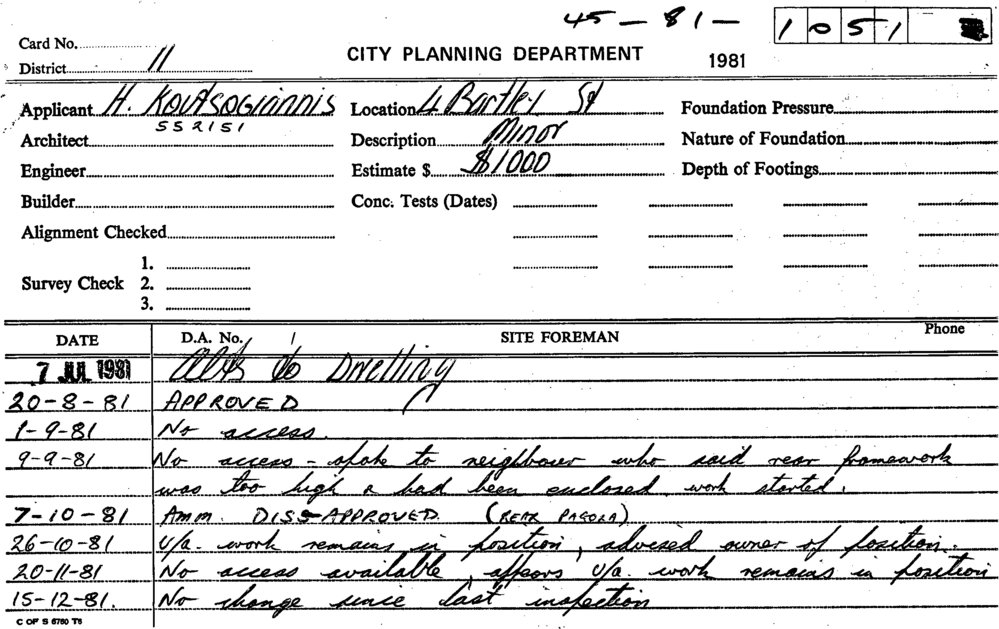 45-81- 1051
Card No.
District 11
CITY PLANNING DEPARTMENT 1981
Applicant H. Koutsogiannis Location 4 Bartley St Foundation Pressure
552151
Architect Description Minor Nature of Foundation
Engineer Estimate $ $1000 Depth of Footings
Builder Conc. Tests (Dates)
Alignment Checked
1.
Survey Check 2.
3.
DATE D.A. No. SITE FOREMAN Phone
7 JUL 1981 Alts to Dwelling
20-8-81 APPROVED
1-9-81 No access.
9-9-81 No access - spoke to neighbour who said rear framework
was too high & had been enclosed, work started.
7-10-81 Amm. DISS-APPROVED. (REAR PAGOLA)
26-10-81 U/a. work remains in position, advised owner of position.
20-11-81 No access available, appears U/a. work remains in position
15-12-81. No change since last inspection
C OF S 6760 T6